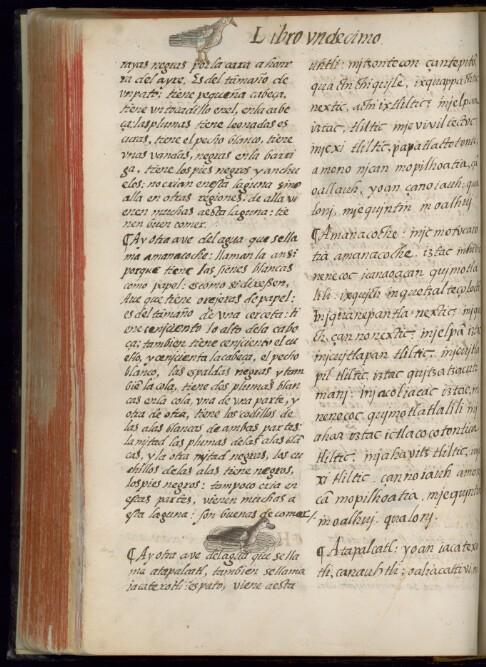 Libro vndecimo.
rayas negras por la cara a
ra del ayre. Es del tamaño de
vn pato: tiene pequeña cabeça,
tiene vn tocadillo en el, en la cabe
ça: las plumas tiene leonadas es
curas, tiene el pecho blanco, tiene
vnas vandas, negras en la barri
ga, tiene los pies negros y anchue
elos: no crian en esta laguna sino
alla en otras regiones: de alla vi
enen muchas a esta laguna: tie
nen buen comer.
¶ Ay otra ave del agua que se lla
ma amanacoche: llaman la ansi
porque tiene las sienes blancas
como papel: es como si dixesen,
Aue que tiene orejeras de papel:
es del tamaño de vna cerceta: ti
ene ceniziento lo alto de la cabe
ça: tambien tiene ceniziento el cu
ello, y ceniziento la cabeça, el pecho
blanco, las espaldas negras y tam
bie la cola, tiene dos plumas blan
cas en la cola, vna de vna parte, y
otra de otra, tiene los codillos de
las alas blancos de ambas partes:
la mitad las plumas de las alas blã
cas, y la otra mitad negras, los cu
chillos de las alas tiene negros,
los pies negros: tampoco cria en
estas partes, vienen muchas a
esta laguna: son buenas de comer
¶ Ay otra ave del agua que se lla
ma atapalcatl, tambien se llama
iacatexotli: es pato, viene a esta
nextic, achi ixtliltic: injelpan
iztac, tliltic, injevivil
injexi tliltic, papatlactotonti,
ameno njcan mopilhoatia,
oallauh, yoan canoiauh:
lonj, mjequintin moalhuj
¶ Amanacoche: injc motocaio
tia amanacoche, iztac
nenecoc icanaoacan quimotla
lili: ixquich inquetzaltecolo
injquanepantla nextic,
ch, çan no nextic: injelpã
injcujtlapan tliltic, injcujtla
pil tliltic, iztac quitzatzacuti
manj: injacoliacac iztac,
nenecoc quimotlatlalili
ahaz iztac ictlacocotontica
tliltic: injahavitz tliltic,
xi tliltic. can no iauh
cã mopilhoatia, mjequintin
moalhuj. qualonj.
¶ Atapalcatl: yoan iacatexo
tli, canauhtli: oalacattivi